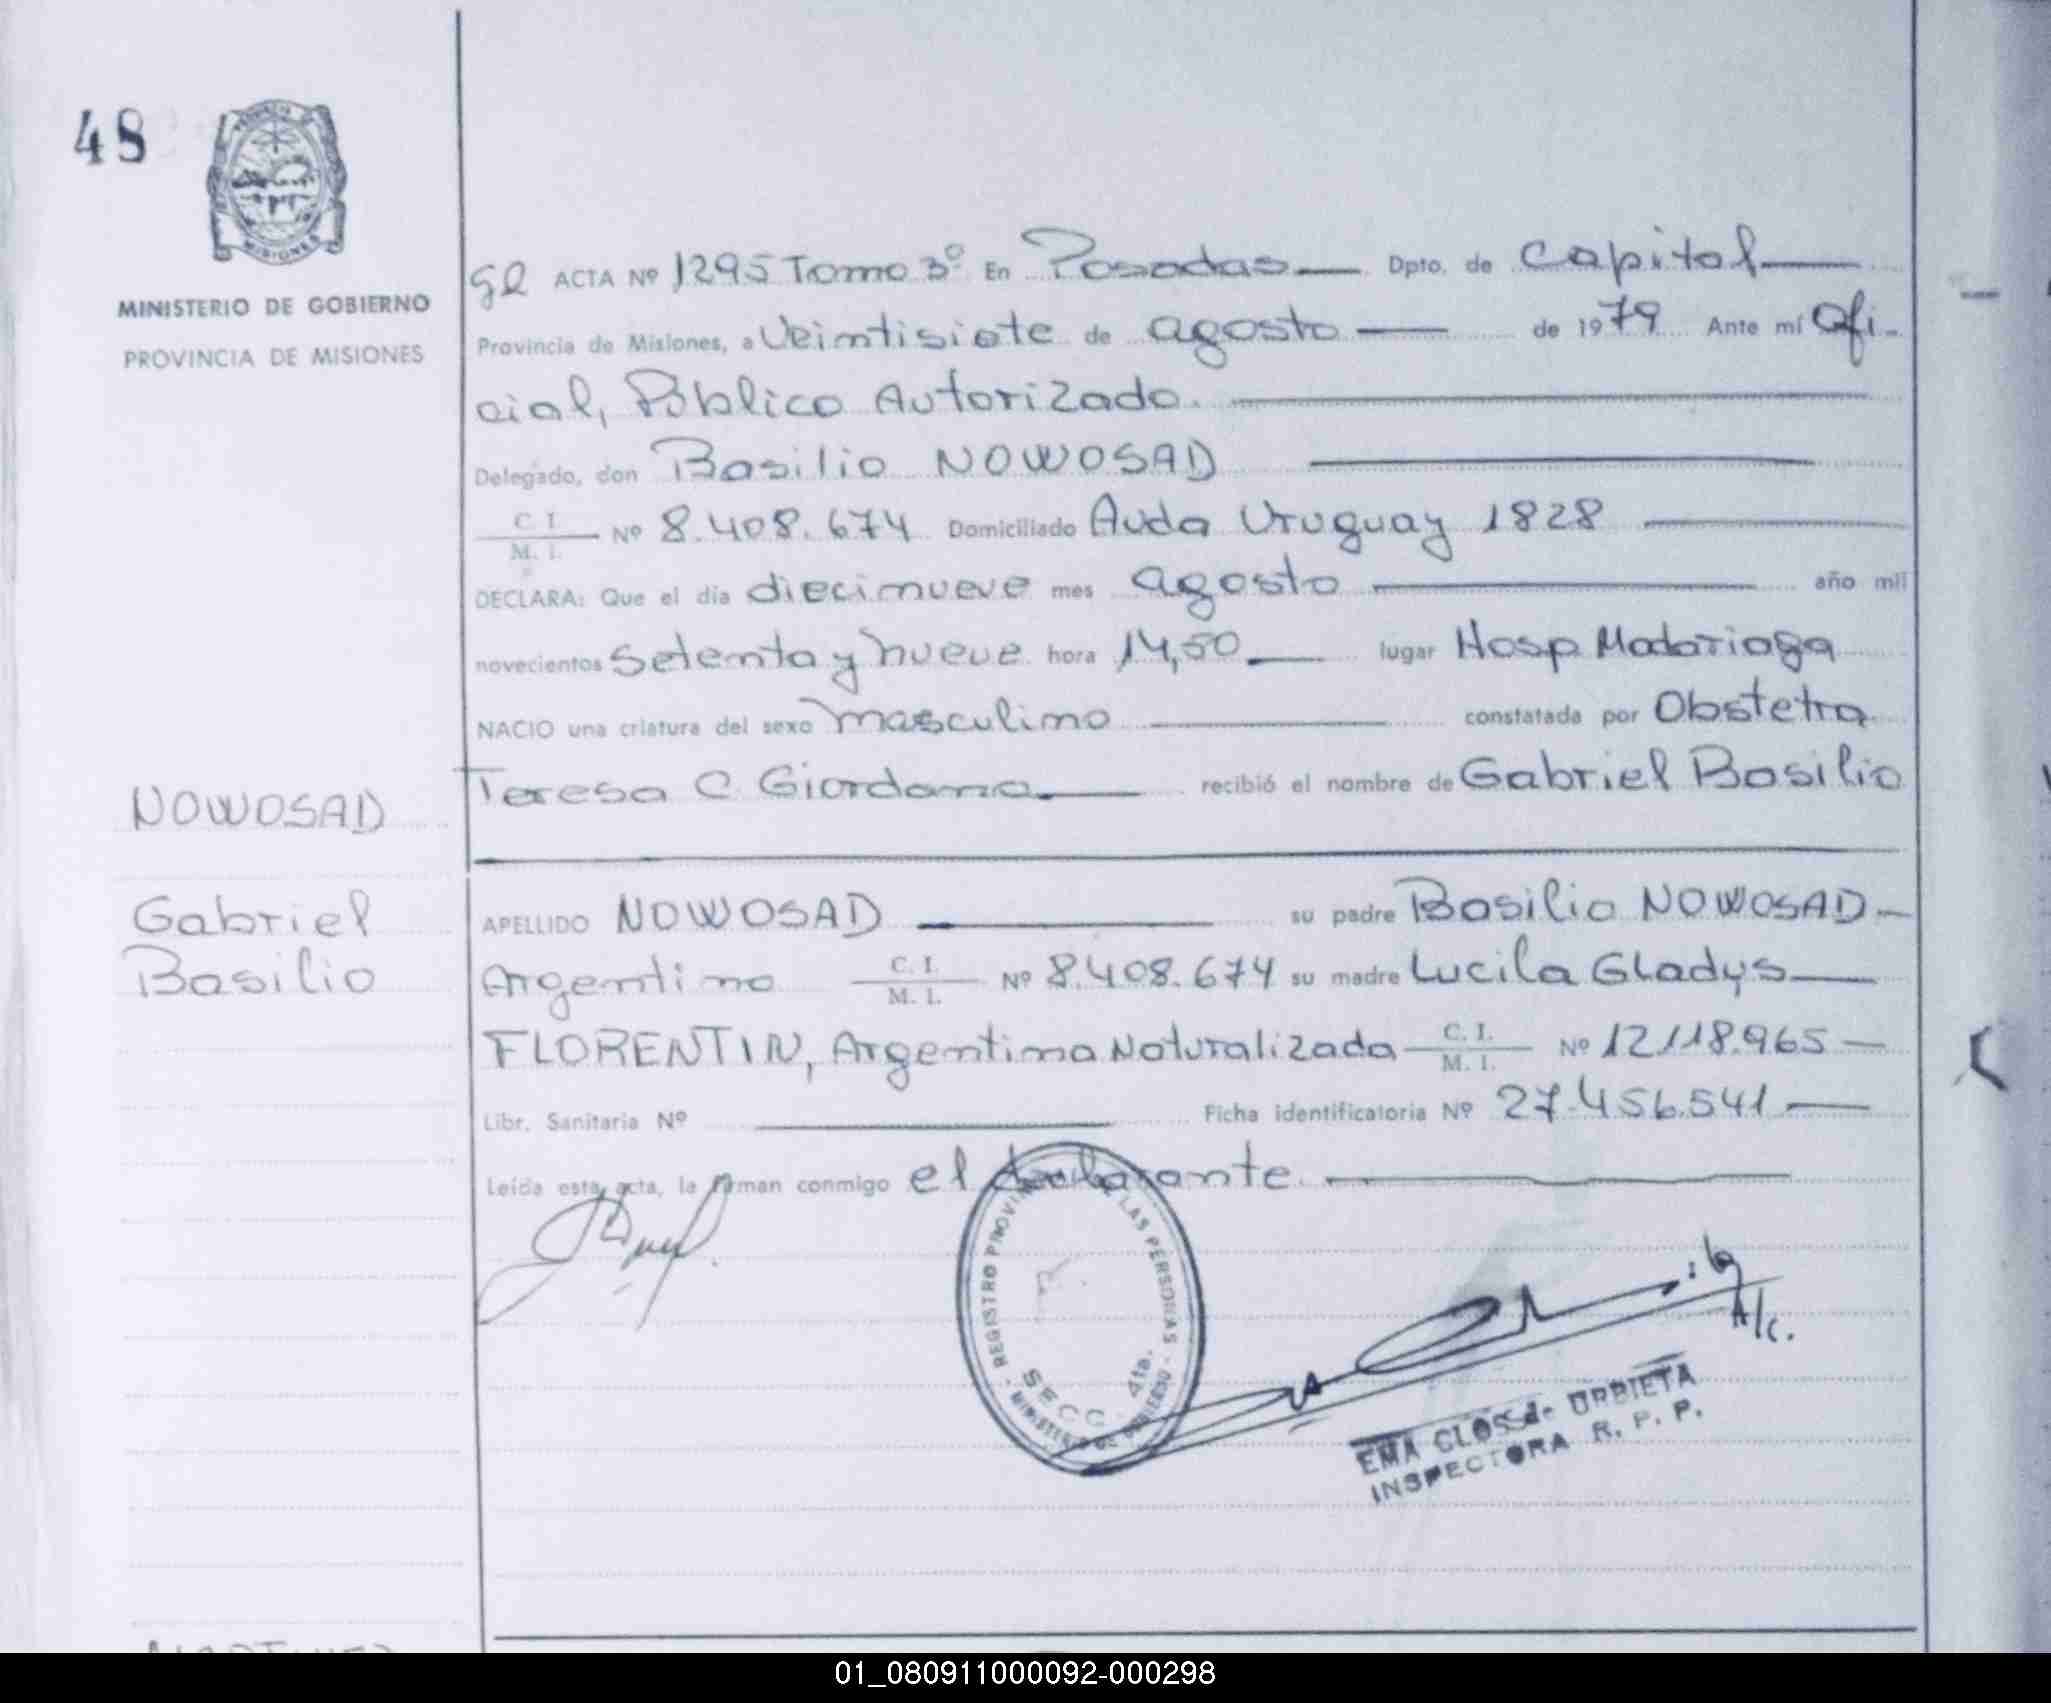 48
PROVINCIA
MISIONES
MINISTERIO DE GOBIERNO
PROVINCIA DE MISIONES
ACTA Nº 1295 Tomo 3º En Posadas Dpto. de Capital
Provincia de Misiones, a Veintisiete de agosto de 1979 Ante mí Ofi-
cial, Público Autorizado.
Delegado, don Basilio NOWOSAD
C. I.
M. I. Nº 8.408.674 Domiciliado Avda Uruguay 1828
DECLARA: Que el día diecinueve mes agosto año mil
novecientos Setenta y nueve hora 14,50 lugar Hosp Madariaga
NACIO una criatura del sexo masculino constatada por Obstetra
Teresa C Giordano recibió el nombre de Gabriel Basilio
NOWOSAD
Gabriel
Basilio
APELLIDO NOWOSAD su padre Basilio NOWOSAD
Argentino C. I. M. I. Nº 8.408.674 su madre Lucila Gladys
FLORENTIN, Argentina Naturalizada C. I. M. I. Nº 12.118.965
Libr. Sanitaria Nº Ficha identificatoria Nº 27.456.541
Leída esta acta, la firman conmigo el declarante.
REGISTRO PROVIN LAS PERSONAS
MINISTERIO DE GOBIERNO
SECC. 4ta.
A/c.
EMA CLOSS de URBIETA
INSPECTORA R. P. P.
01_080911000092-000298